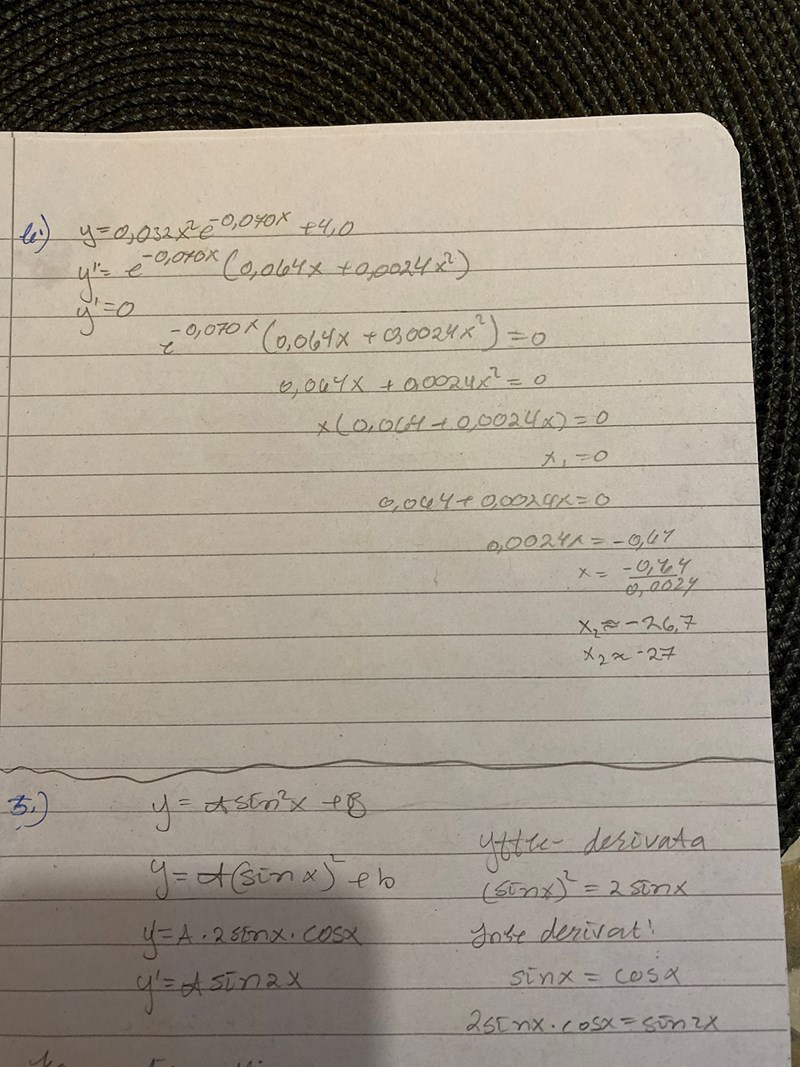 4.) y=0,032x²e^-0,070x +4,0
y'= e^-0,070x (0,064x +0,0024x²)
y'=0
e^-0,070x (0,064x + 0,0024x²) = 0
0,064x + 0,0024x² = 0
x(0,064 + 0,0024x) = 0
x₁ = 0
0,064 + 0,0024x = 0
0,0024x = -0,64
x = -0,64 / 0,0024
x₂ ≈ -26,7
x₂ ≈ -27
5.) y = A sin²x + B
y = A(sin x)² + b
y = A · 2 sinx · cosx
y' = A sin2x
Yttre derivata
(sinx)² = 2 sinx
Inre derivat:
sinx = cosx
2sinx · cosx = sin2x